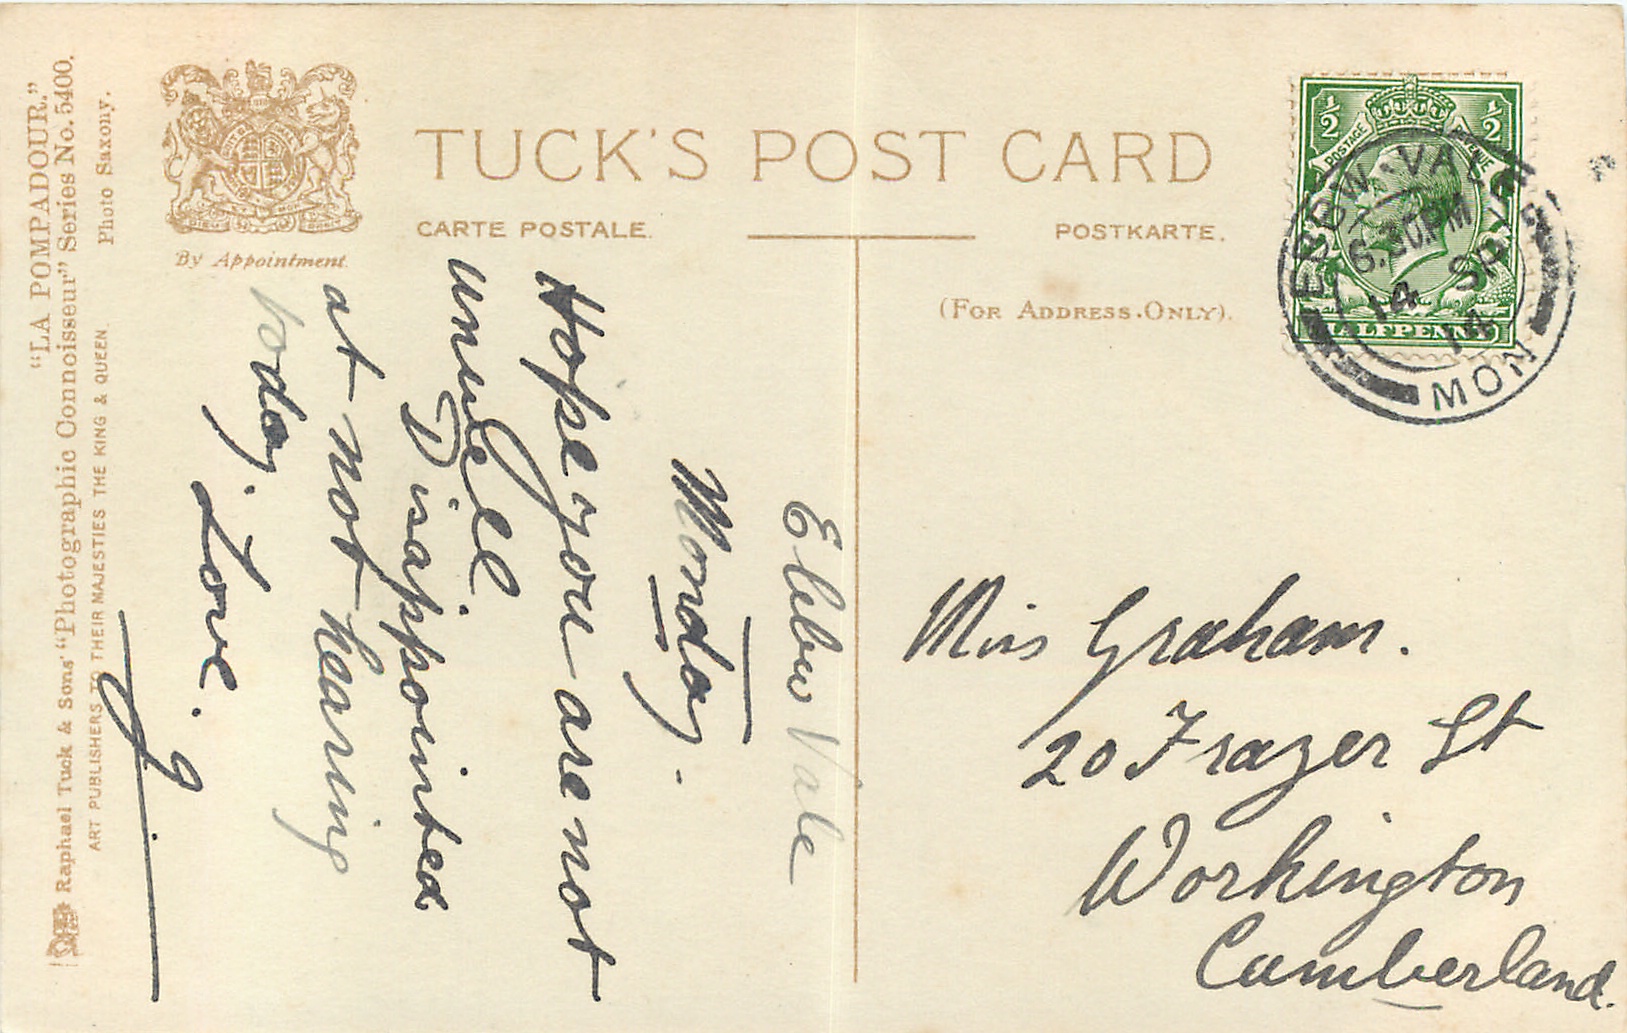 "LA POMPADOUR."
Raphael Tuck & Sons' "Photographic Connoisseur" Series No. 5400.
ART PUBLISHERS TO THEIR MAJESTIES THE KING & QUEEN
Photo Saxony.
By Appointment.
TUCK'S POST CARD
CARTE POSTALE.
POSTKARTE.
(For Address Only).
½ ½
POSTAGE REVENUE
HALFPENNY
EBBW VALE
6.30PM
14 SP
14
MON
Ebbw Vale
Monday.
Hope you are not
unwell.
Disappointed
at not hearing
today. Love.
J.
Miss Graham.
20 Frazer St
Workington
Cumberland.